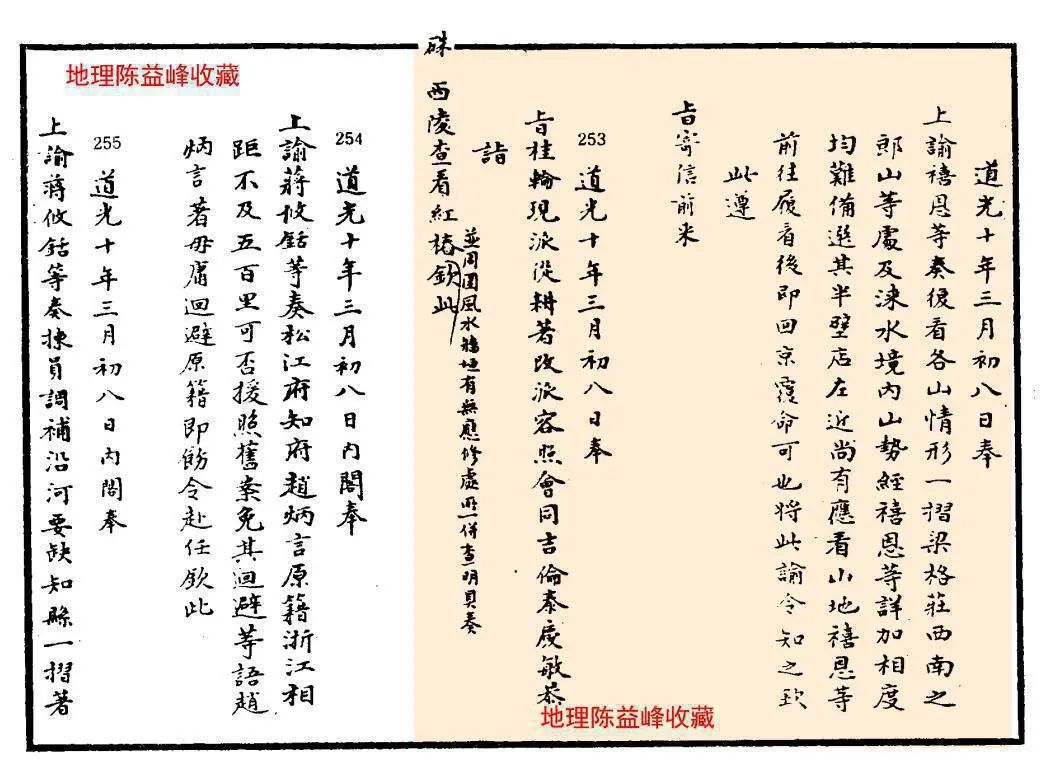 道光十年三月初八日奉
上諭禧恩等奏復看各山情形一摺梁格莊西南之
郎山等處及淶水境內山勢經禧恩等詳加相度
均難備選其半壁店左近尚有應看山地禧恩等
前往履看後即回京覆命可也將此諭令知之欽
此遵
旨寄信前來
253 道光十年三月初八日奉
旨桂輪現派從耕著改派容照會同吉倫泰慶敏恭
詣
西陵查看紅樁欽此
並周圍風水牆垣有無應修處所一併查明具奏
硃
254 道光十年三月初八日內閣奉
上諭蔣攸銛等奏松江府知府趙炳言原籍浙江相
距不及五百里可否援照舊案免其迴避等語趙
炳言著毋庸迴避原籍即飭令赴任欽此
255 道光十年三月初八日內閣奉
上諭蔣攸銛等奏揀員調補沿河要缺知縣一摺著
地理陈益峰收藏
地理陈益峰收藏